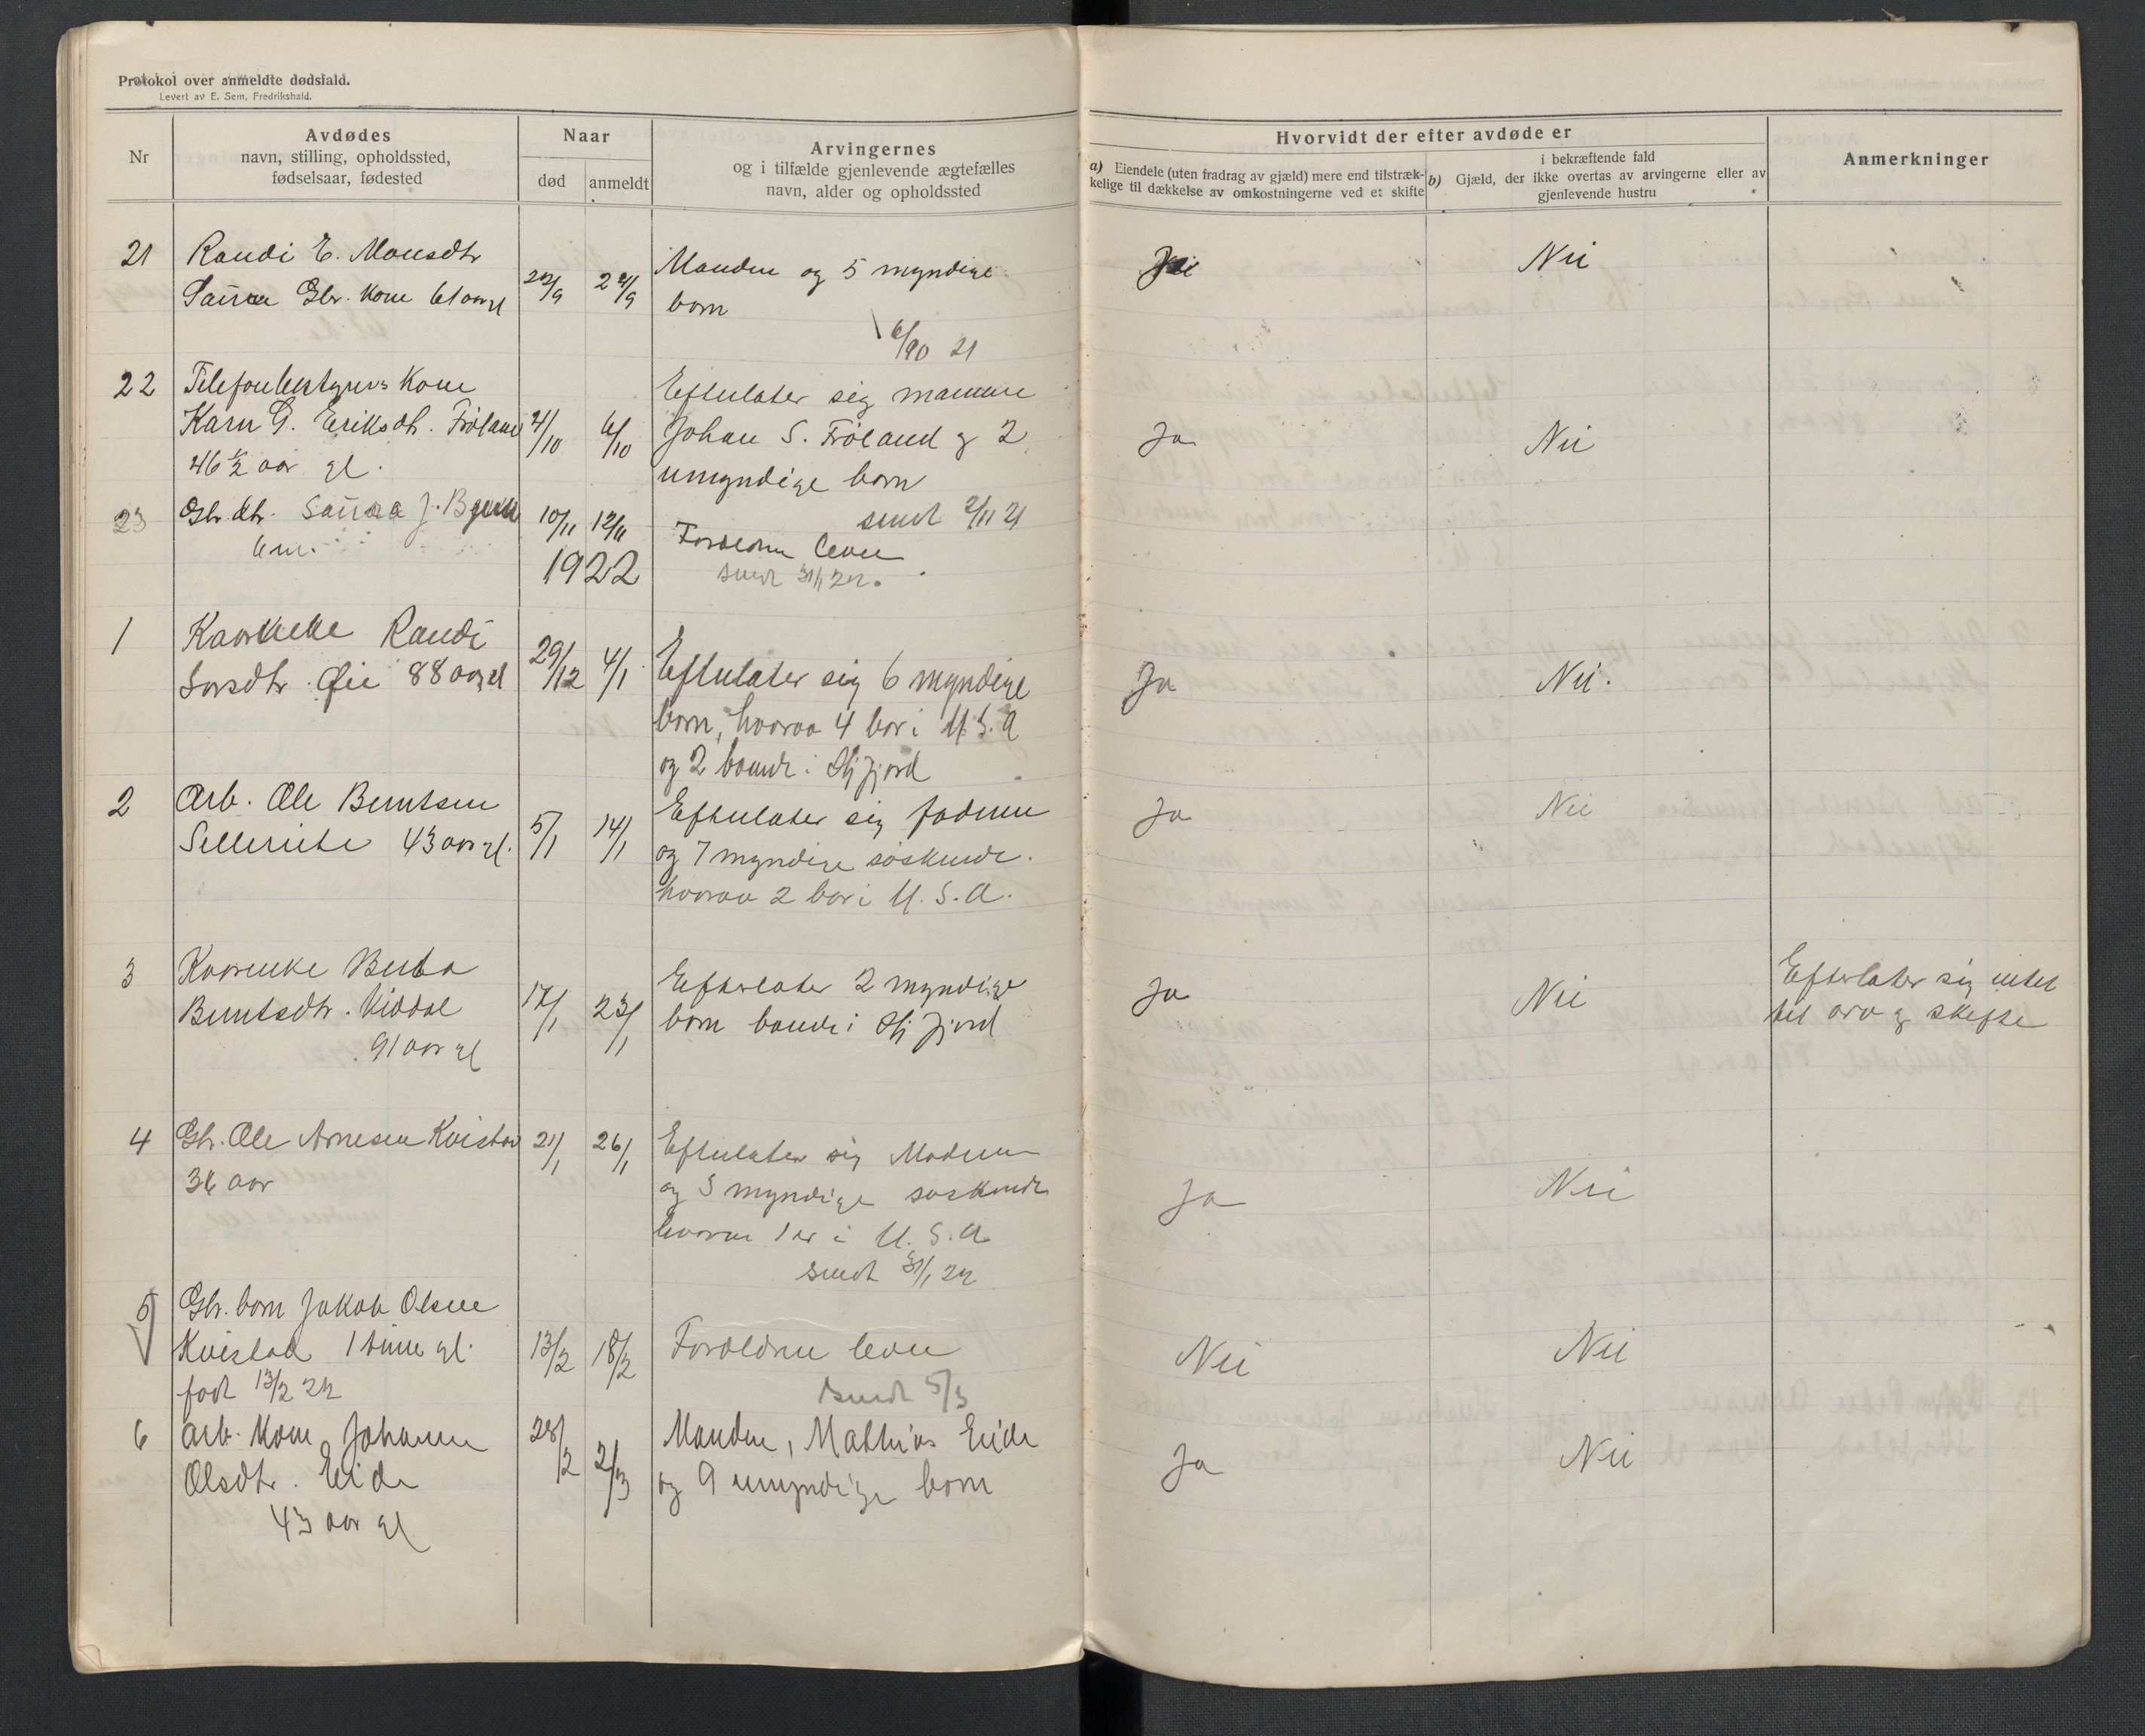 Protokol over anmeldte dødsfald.
Levert av E. Sem, Fredrikshald.
Nr
Avdødes
navn, stilling, opholdssted,
fødselsaar, fødested
Naar
død
anmeldt
Arvingernes
og i tilfælde gjenlevende ægtefælles
navn, alder og opholdssted
Hvorvidt der efter avdøde er
a) Eiendele (uten fradrag av gjæld) mere end tilstræk-
kelige til dækkelse av omkostningerne ved et skifte
i bekræftende fald
b) Gjæld, der ikke overtas av arvingerne eller av
gjenlevende hustru
Anmerkninger
21
Randi E. Monsdtr
Gbr. kone 61 aar gl
22/9
Manden og 5 myndige
born
6/10 21
Nei
22
Telefonbestyrers Kone
Karn G. Eriksdtr. Fröland
46 ½ aar gl.
4/10
6/10
Efterlater sig mannen
Johan S. Fröland og 2
umyndige born
sendt 2/11 21
Ja
Nei
23
Gbr. dtr. J.
10/11
12/11
Foreldrene lever
sendt 31/1 22.
1922
1
Randi
Larsdtr. Øie 88 aar gl
29/12
4/1
Efterlater sig 6 myndige
born, hvorav 4 bor i U.S.A
og 2 boende i fjord
Ja
Nei.
2
Arb. Ole Berntsen
43 aar gl.
5/1
14/1
Efterlater sig faderen
og 7 myndige söskende.
hvorav 2 bor i U.S.A.
Ja
Nei
3
Berta
Berntsdtr.
91 aar gl
17/1
23/1
Efterlater 2 myndige
born boende i fjord
Ja
Nei
Efterlater sig intet
til arv og skifte
4
Gbr. Ole Arnesen Kvistad
36 aar
21/1
26/1
Efterlater sig Moderen
og 3 myndige soskende
hvorav 1 er i U.S.A
sendt 31/1 22
Ja
Nei
5
Gbr. born Jakob Olsen
Kvistad 1 time gl.
fodt 13/2 22
13/2
18/2
Foreldrene lever
sendt 5/3
Nei
Nei
6
Arb. kone Johanne
Olsdtr. Eide
43 aar gl
28/2
2/3
Manden, Mathias Eide
og 9 umyndige born
Ja
Nei